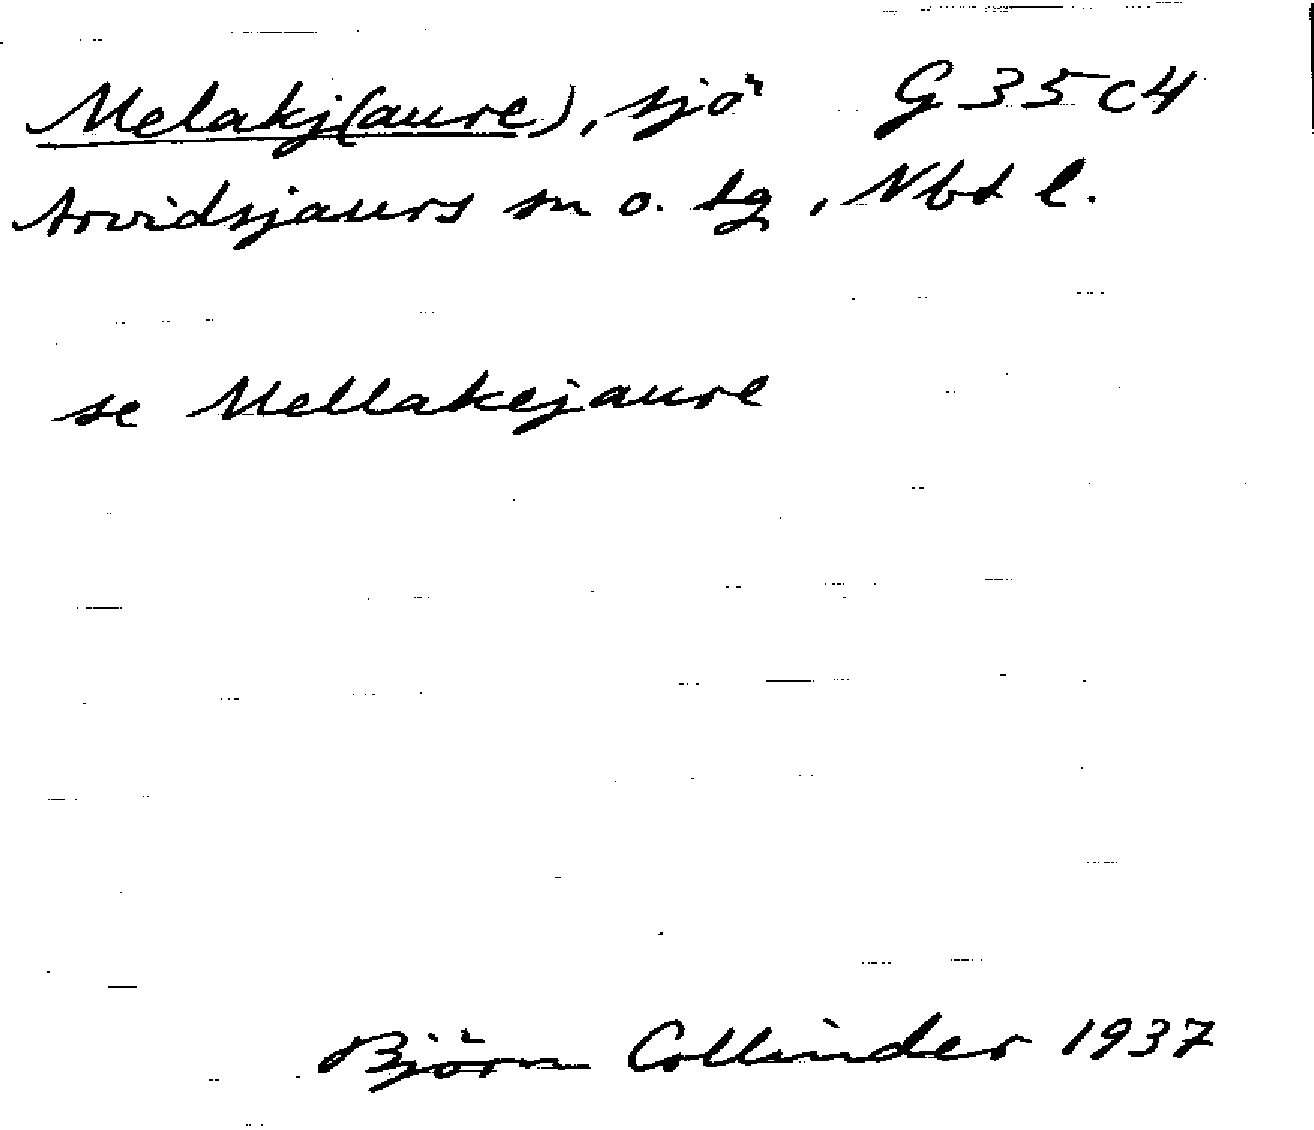 Melakj(aure), sjö G 35 c 4
Arvidsjaurs sn o. tg, Nbt l.
se Mellakejaure
Björn Collinder 1937